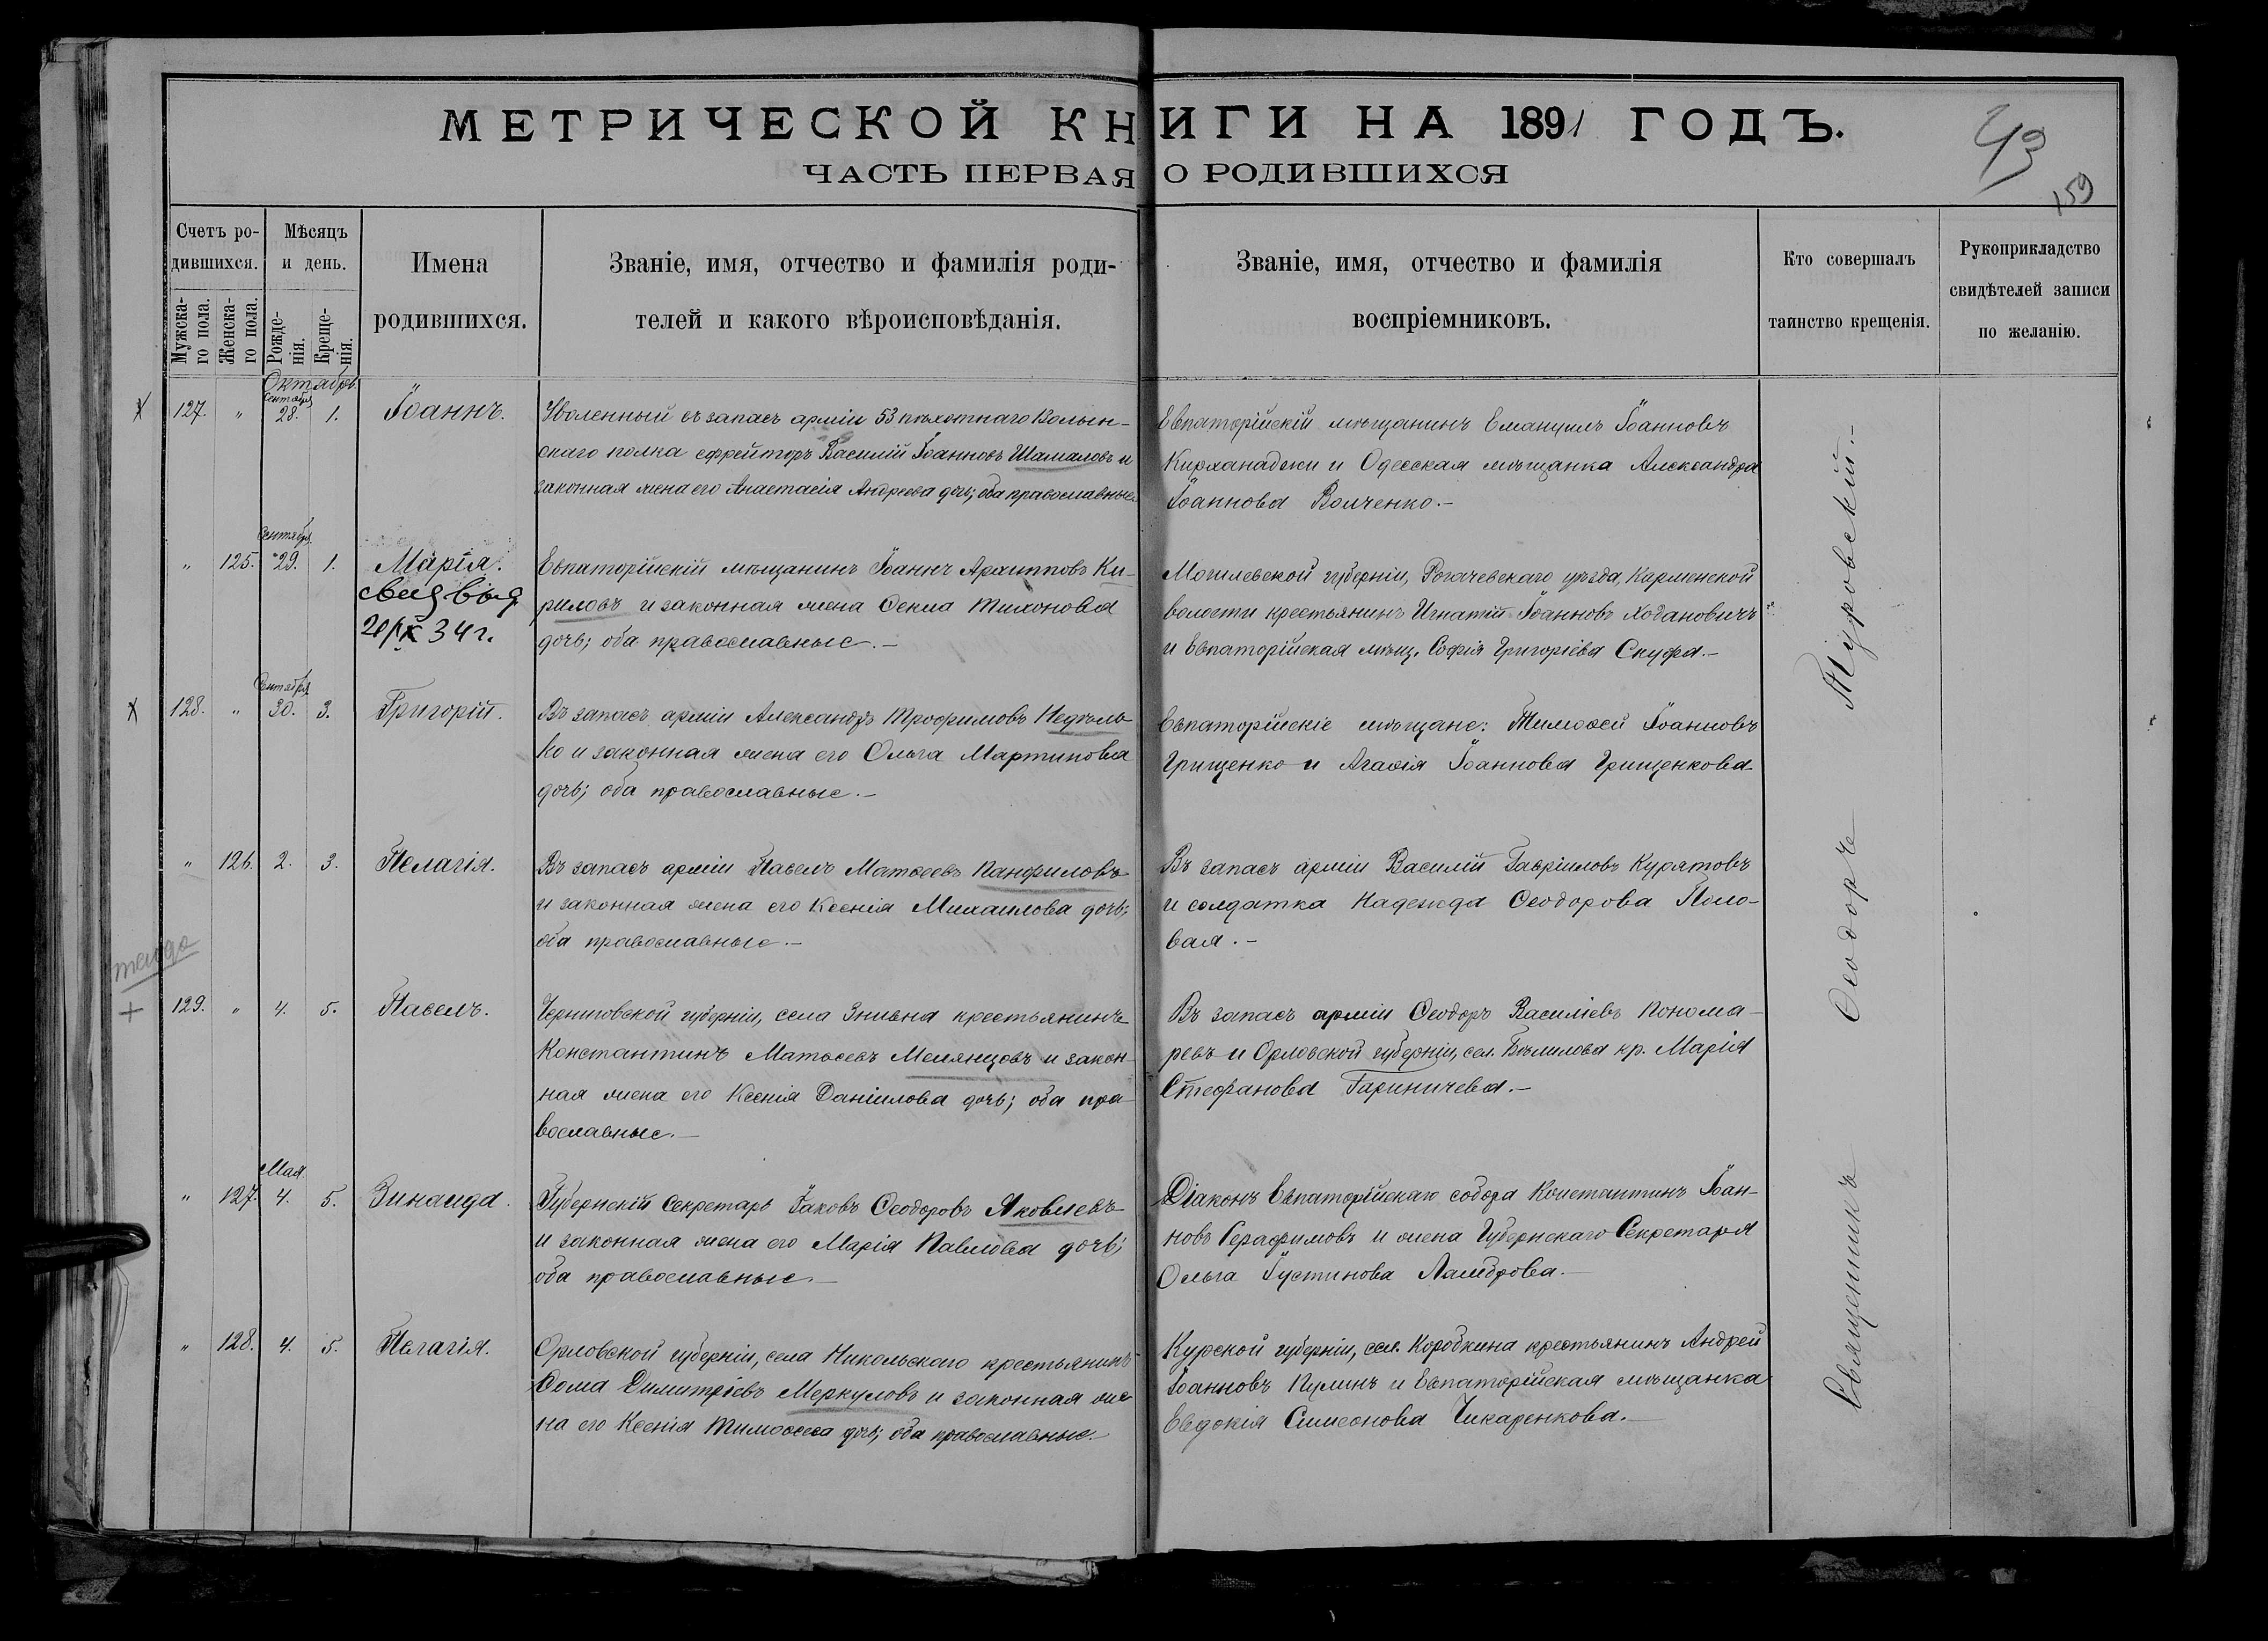 МЕТРИЧЕСКОЙ КНИГИ НА 1891 ГОДЪ.
ЧАСТЬ ПЕРВАЯ О РОДИВШИХСЯ
43
159
Счетъ ро-
дившихся.
Мужска-
го пола.
Женска-
го пола.
Мѣсяцъ
и день.
Рожде-
нія.
Креще-
нія.
Имена
родившихся.
Званіе, имя, отчество и фамилія роди-
телей и какого вѣроисповѣданія.
Званіе, имя, отчество и фамилія
воспріемниковъ.
Кто совершалъ
таинство крещенія.
Рукоприкладство
свидѣтелей записи
по желанію.
Октябрь
Сентября
127. " 28. 1. Іоаннъ.
Уволенный въ запасъ арміи 53 пѣхотнаго Волын-
скаго полка ефрейторъ Василій Іоанновъ Шамаловъ и
законная жена его Анастасія Андреева дочь; оба православные.
Евпаторійскій мѣщанинъ Емануилъ Іоанновъ
и Одесская мѣщанка Александра
Іоаннова Волченко.-
Сентября
" 125. 29. 1. Марія.
свид выд
34 г.
Евпаторійскій мѣщанинъ Іоаннъ Архипповъ Ки-
риловъ и законная жена Ѳекла Тихонова
дочь; оба православные.-
Могилевской губерніи, Рогачевскаго уѣзда, Карпенской
волости крестьянинъ Игнатій Іоанновъ Ходановичъ
и Евпаторійская мѣщ. Софія Григоріева Скуфа.-
Сентября
128. " 30. 3. Григорій.
Въ запасѣ арміи Александръ Трофимовъ Недѣль-
ко и законная жена его Ольга Мартинова
дочь; оба православные.-
Евпаторійскіе мѣщане: Тимоѳей Іоанновъ
Грищенко и Агаѳія Іоаннова Грищенкова
" 126. 2. 3. Пелагія.
Въ запасѣ арміи Павелъ Матѳеевъ Панфиловъ
и законная жена его Ксенія Михаилова дочь;
оба православные.-
Въ запасѣ арміи Василій Гавріиловъ Курятовъ
и солдатка Надежда Ѳеодорова Поло-
вая.-
129. " 4. 5. Павелъ.
Черниговской губерніи, села крестьянинъ
Константинъ Матѳеевъ Мелянцовъ и закон-
ная жена его Ксенія Даніилова дочь; оба пра-
вославные.-
Въ запасѣ арміи Ѳеодоръ Василіевъ Понома-
ревъ и Орловской губерніи, сел. кр. Марія
Стефанова Гариничева.-
Мая
" 127. 4. 5. Зинаида.
Губернскій Секретарь Іаковъ Ѳеодоровъ Яковлевъ
и законная жена его Марія Павлова дочь;
оба православные.-
Діаконъ Евпаторійскаго собора Константинъ Іоан-
новъ Серафимовъ и жена Губернскаго Секретаря
Ольга Іустинова Ламброва.-
" 128. 4. 5. Пелагія.
Орловской губерніи, села Никольскаго крестьянинъ
Ѳома Димитріевъ Меркуловъ и законная же-
на его Ксенія Тимоѳеева дочь; оба православные.-
Курской губерніи, сел. Коробкина крестьянинъ Андрей
Іоанновъ Пулинъ и Евпаторійская мѣщанка
Евдокія Симеонова Чикаренкова.-
Священникъ Ѳеодоръ Туровскій.-